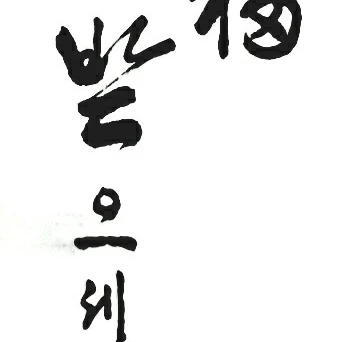 福
받으세